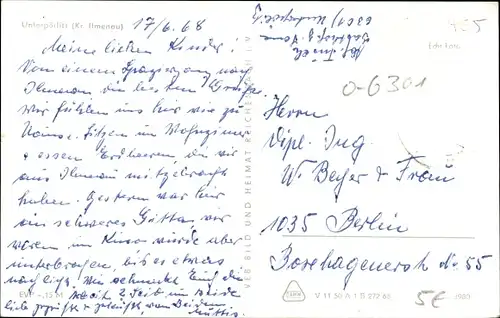 Unterpörlitz (Kr. Ilmenau)
17/6.68
Meine lieben Kinder!
Von einem Spaziergang nach
Ilmenau die besten Grüße.
Wir fühlen uns hier wie zu
Hause. Sitzen im Wohnzimmer
+ essen Erdbeeren, die wir
aus Ilmenau mitgebracht
haben. Gestern war hier
ein schweres Gewitter, wir
waren im Kino wurde aber
unterbrochen, bis es etwas
Wie schmeckt Euch die
Zeit
liebe grüßt + von Beiden
Muttis
EVP -,15 M
VEB BILD UND HEIMAT REICHENBACH I. V.
6301
Echt Foto
465
0-6301
Herrn
Dipl. Ing.
W. Beyer + Frau
1035 Berlin
Boxhagenerstr. No 55
V 11 50 A 1 D 272 68
5€